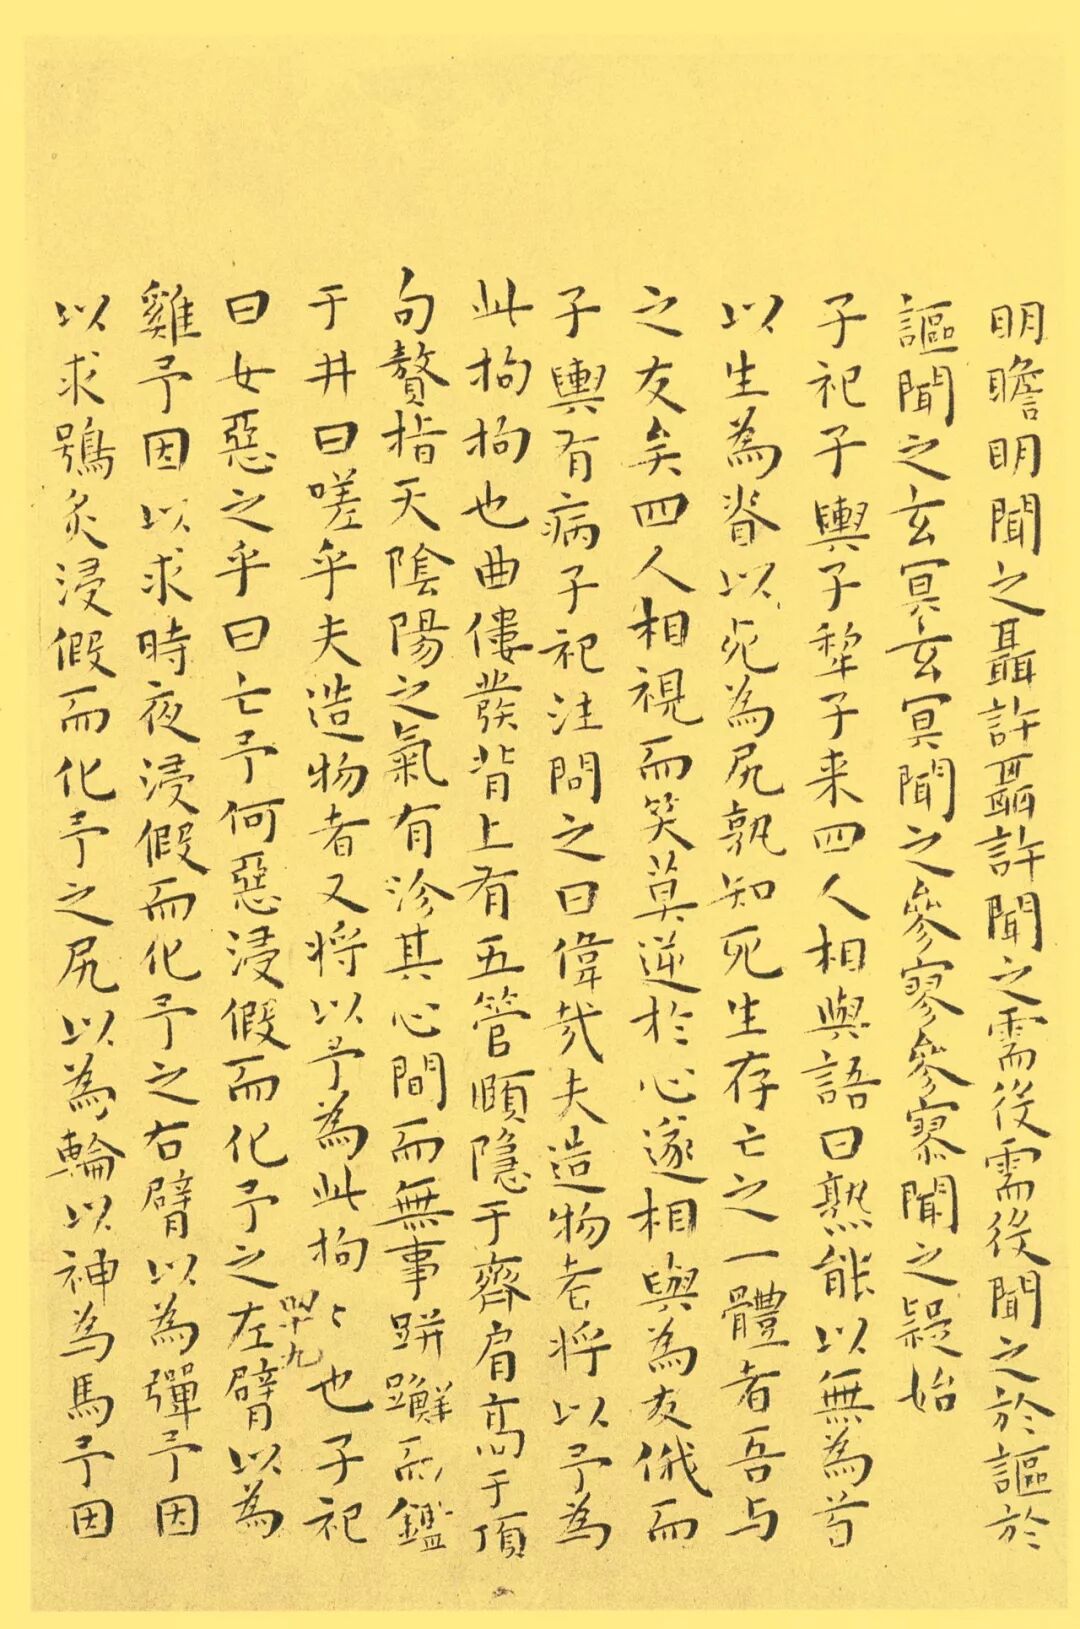 明瞻明聞之聶許聶許聞之需役需役聞之於謳於
謳聞之玄冥玄冥聞之參寥參寥聞之疑始
子祀子輿子犂子来四人相與語曰熟能以無為首
以生為脊以死為尻孰知死生存亡之一體者吾与
之友矣四人相視而笑莫逆於心遂相與為友俄而
子輿有病子祀注問之曰偉哉夫造物者将以予為
此拘拘也曲僂發背上有五管頤隱于齊肩高于頂
句贅指天陰陽之氣有沴其心間而無事跰𨇤而鑑
于井曰嗟乎夫造物者又将以予為此拘〻也子祀
曰女惡之乎曰亡予何惡浸假而化予之左臂以為
雞予因以求時夜浸假而化予之右臂以為彈予因
以求鴞炙浸假而化予之尻以為輪以神為馬予因
四十九